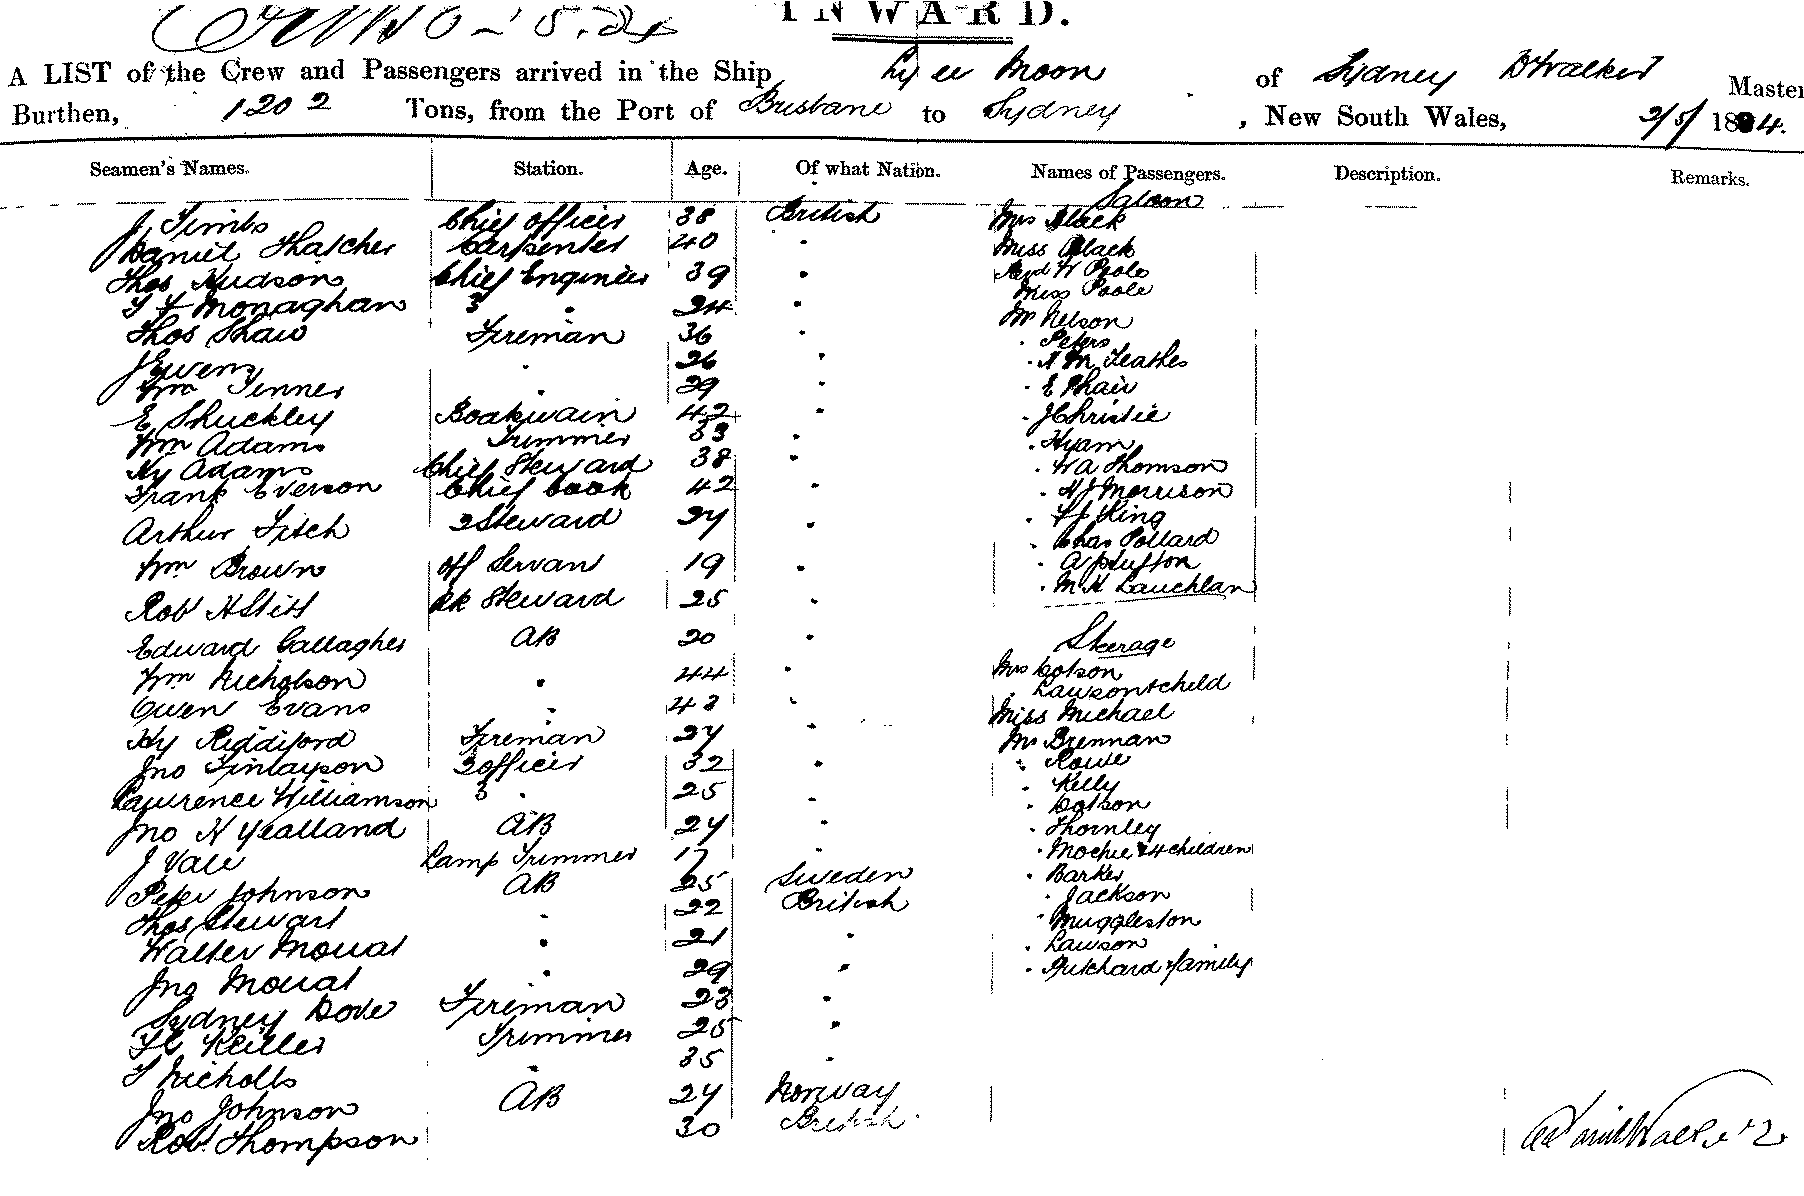 INWARD.
A LIST of the Crew and Passengers arrived in the Ship Ly ee Moon of Sydney D Walker Master
Burthen, 1202 Tons, from the Port of Brisbane to Sydney, New South Wales, 2/5/ 1884.
Seamen's Names. Station. Age. Of what Nation. Names of Passengers. Description. Remarks.
Saloon
J Timbs Chief Officer 38 British Mrs Black
Daniel Thatcher Carpenter 40 " Miss Black
Thos Hudson Chief Engineer 39 " Revd W Poole
T F Monaghan 3 " 24 " Miss Poole
Thos Shaw Fireman 36 " Mr Nelson
" Peters
J Ewens " 26 " " A M Feathes
Wm Jenner " 29 " " E Phair
E Shuckley Boatswain 42 " " J Christie
Wm Adams Trimmer 33 " " Hyam
Hy Adams Chief Steward 38 " " W A Thomson
Frank Everson Chief Cook 42 " " H J Morrison
Arthur Fitch 2 Steward 27 " " F J King
" Chas Pollard
Wm Brown Off Servan 19 " " A Sutton
Rob H Stitt Bk Steward 25 " " M H Lauchlan
Edward Gallagher AB 20 " Steerage
Wm Nicholson " 44 " Mrs Cotson
" Lawson & child
Owen Evans " 43 " Miss Michael
Hy Riddiford Fireman 27 " Mr Brennan
Jno Finlayson 2 officer 32 " " Rowe
Lawrence Williamson 3 " 25 " " Kelly
" Cotson
Jno H Yealland AB 27 " " Thornley
J Vale Lamp Trimmer 17 " " Mochie & 4 children
Peter Johnson AB 25 Sweden " Barker
Thos Stewart " 22 British " Jackson
" Muggleston
Walter Mouat " 21 " " Lawson
Jno Mouat " 29 " " Pritchard & family
Sydney Dove Fireman 23 "
F C Keiller Trimmer 25 "
T Nicholls " 35 "
Jno Johnson AB 27 Norway
Rob Thompson 30 British